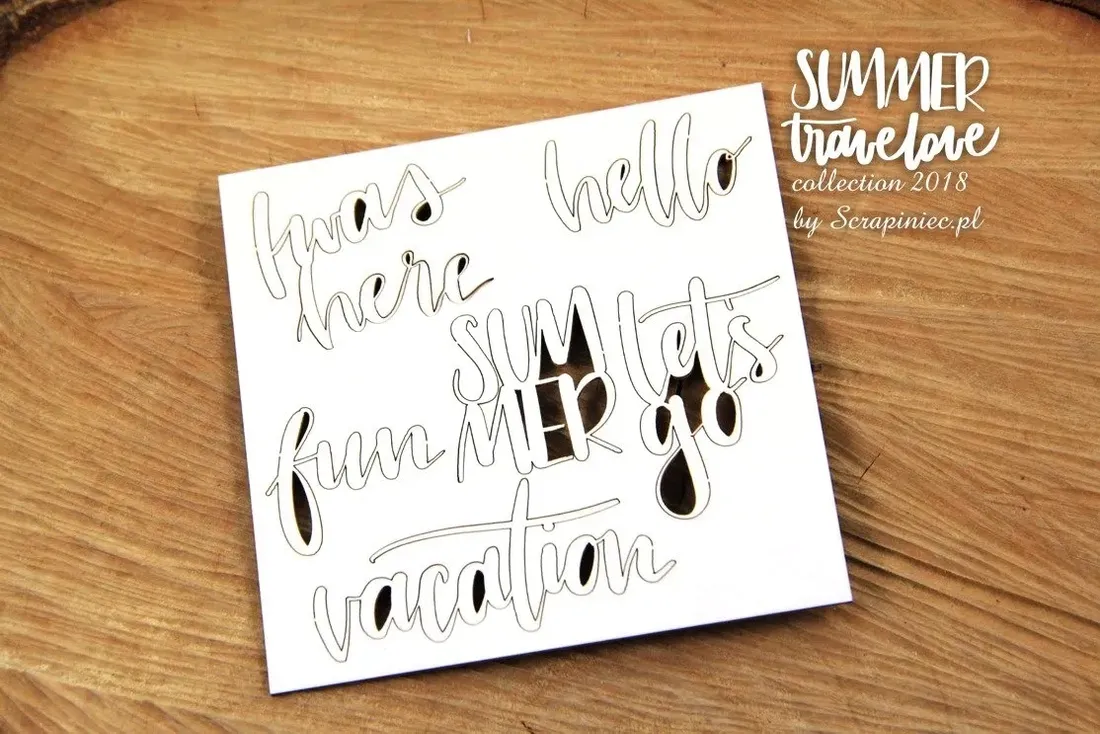 I was
here
hello
SUM
MER
let's
go
fun
vacation
SUMMER
travelove
collection 2018
by Scrapiniec.pl